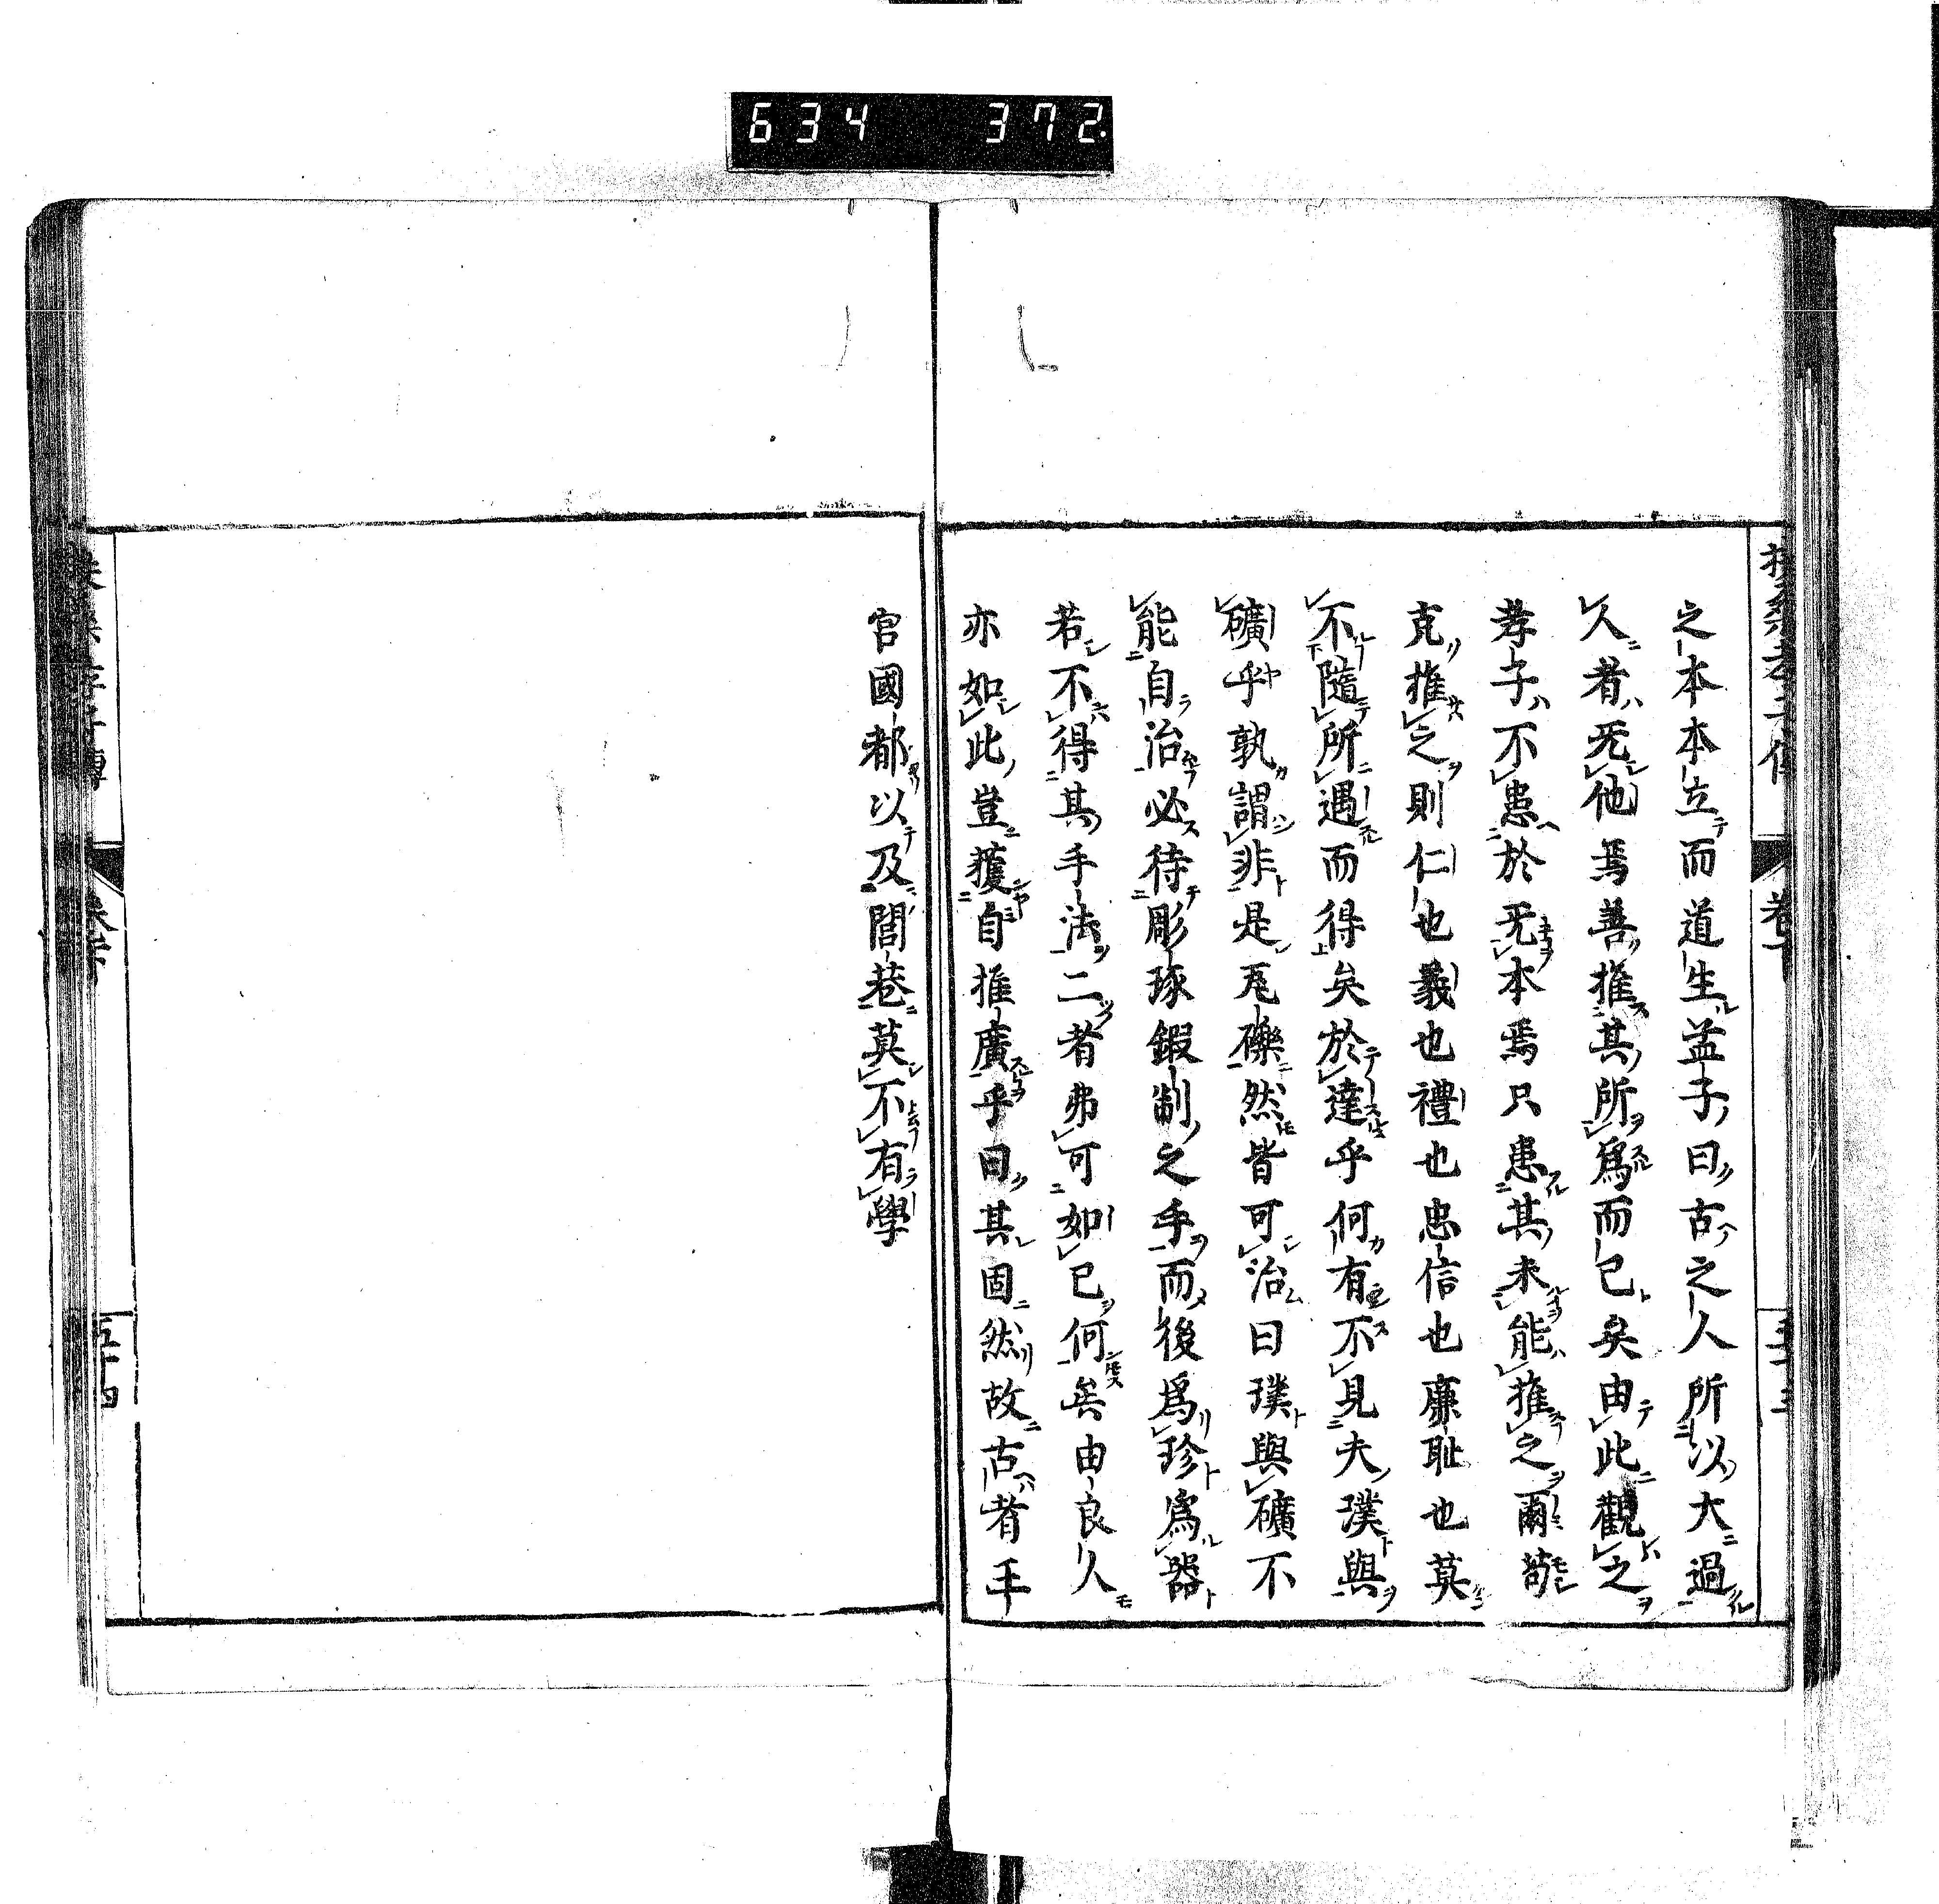 634 372.
之本本立而道生孟子曰古之人所以大過
人者无他焉善推其所爲而已矣由此觀之
孝子不患於无本焉只患其未能推之爾苟
克推之則仁也義也禮也忠信也廉耻也莫
不隨所遇而得矣於達乎何有不見夫璞與
礦乎孰謂非是瓦礫然皆可治曰璞與礦不
能自治必待彫琢鍜制之手而後爲珍爲器
若不得其手法二者弗可如已何矣由良人
亦如此豈獲自推廣乎曰其固然故古者王
宮國都以及閭巷莫不有學
五十四